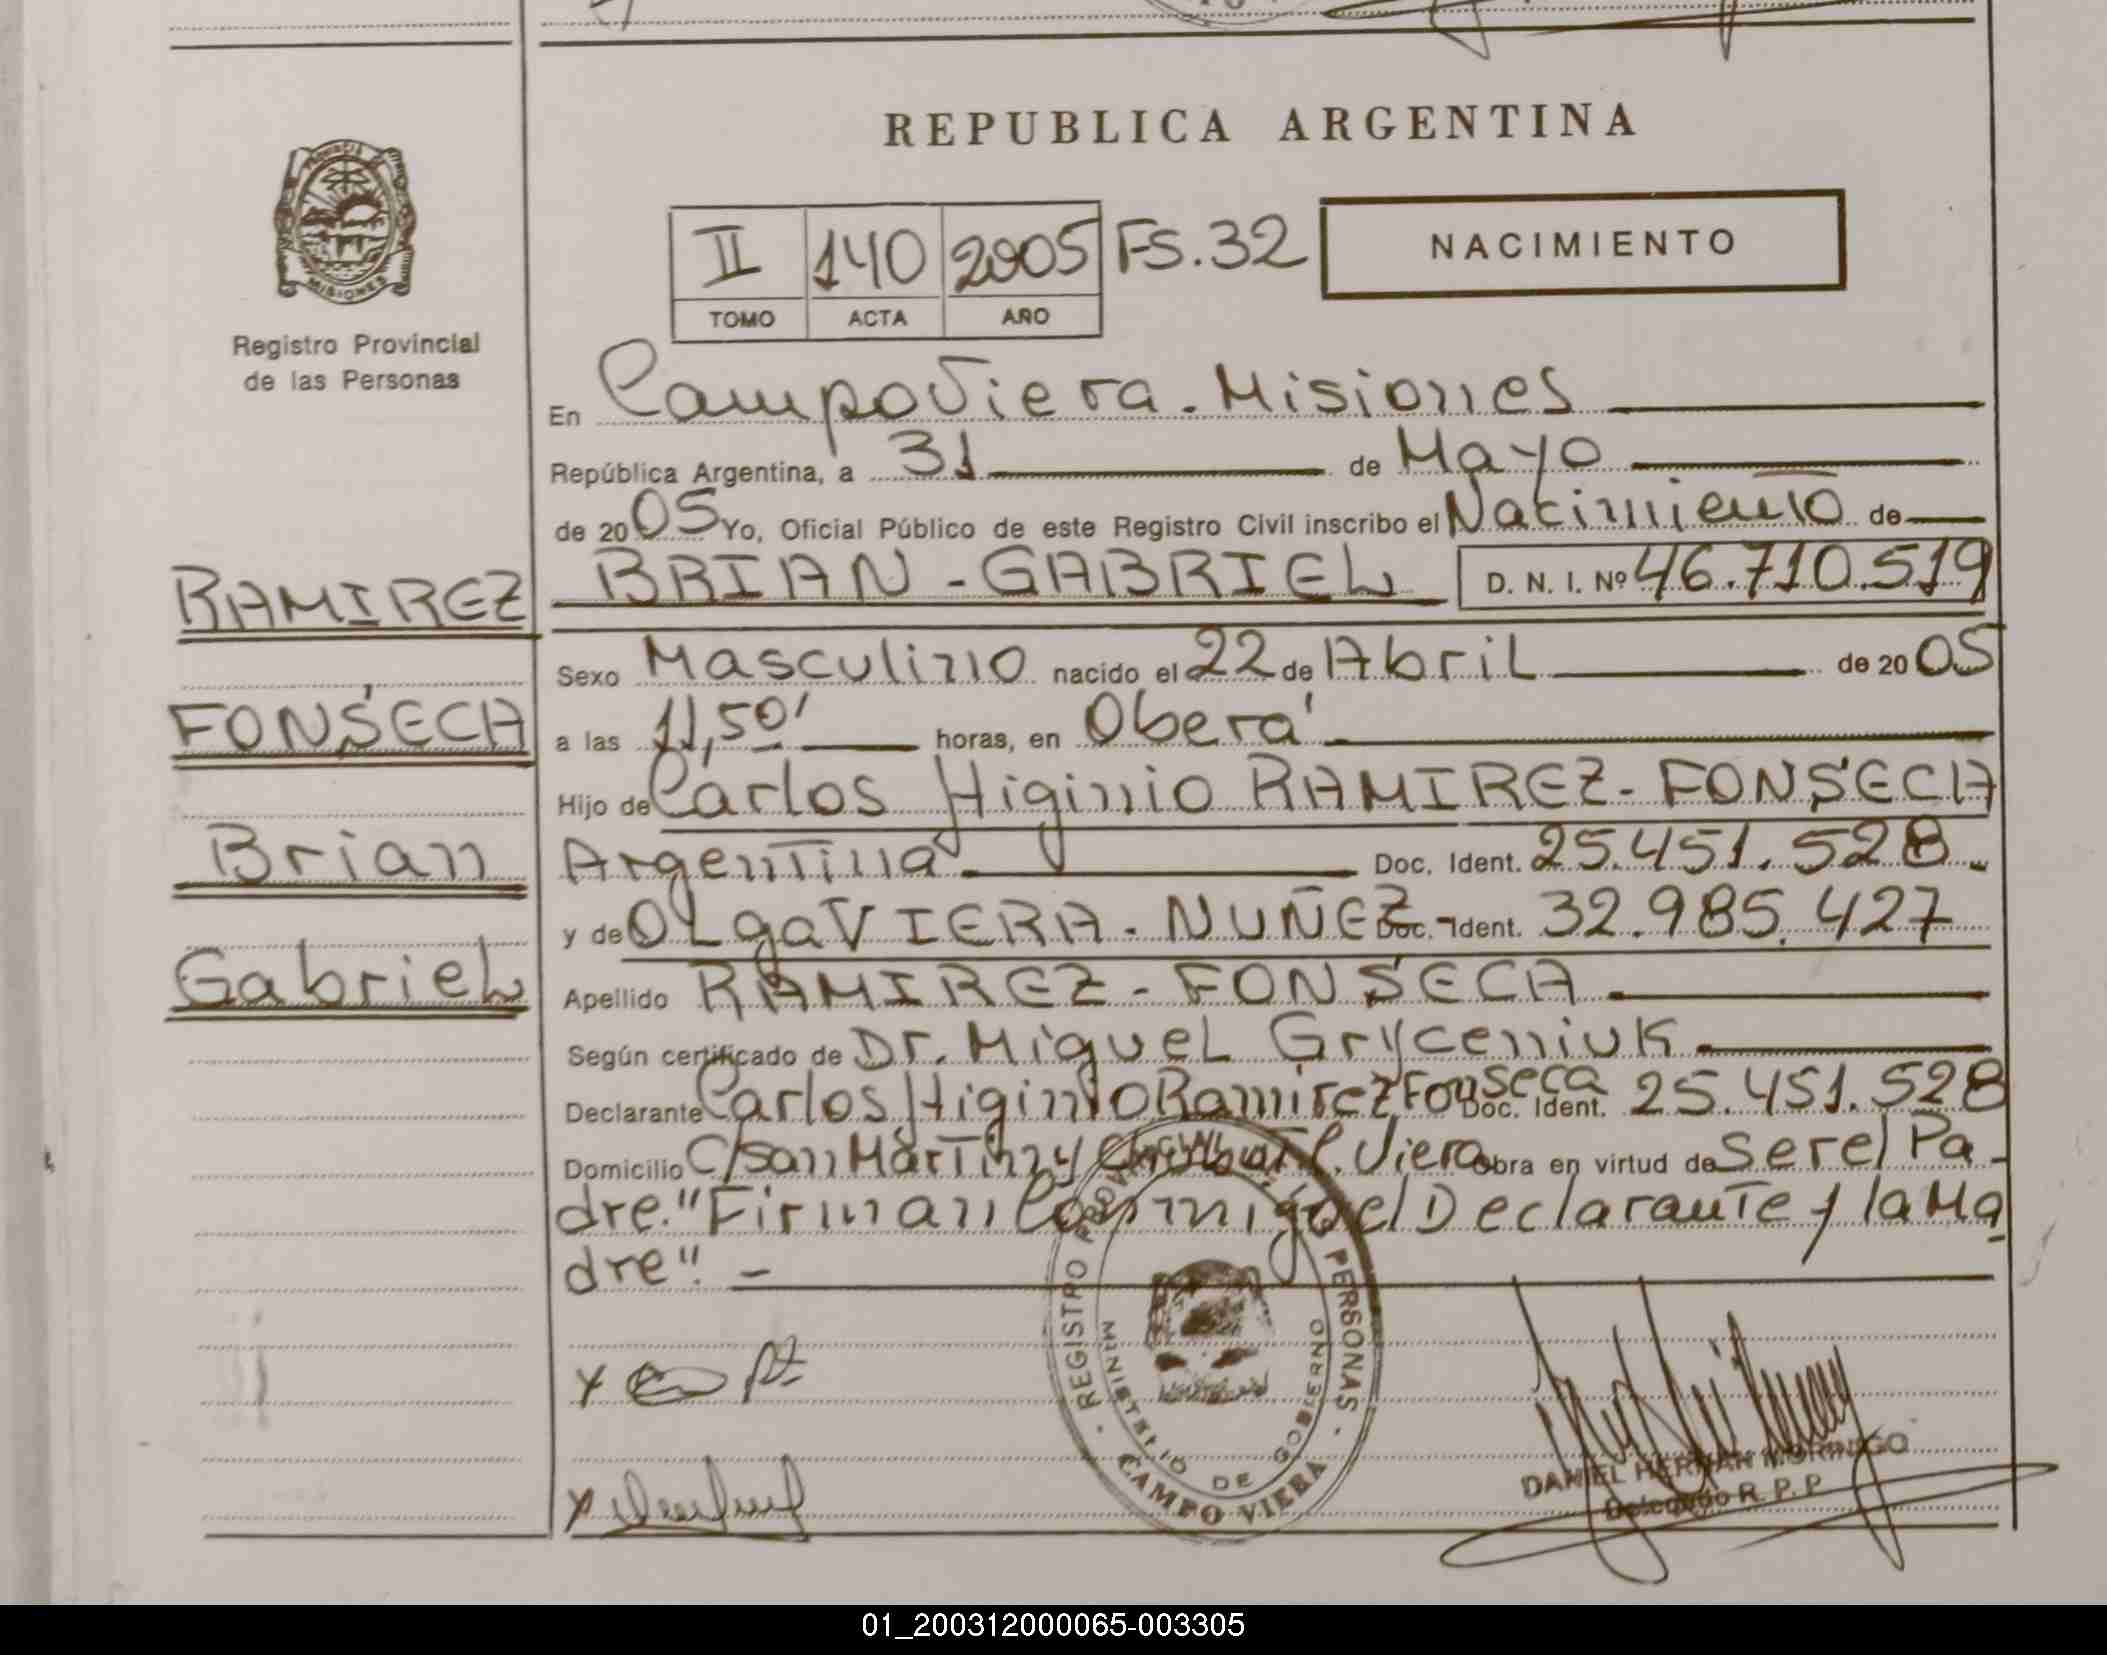 REPUBLICA ARGENTINA
PROVINCIA
MISIONES
Registro Provincial
de las Personas
II 140 2005 FS.32
TOMO ACTA AÑO
NACIMIENTO
En Campo Viera - Misiones
República Argentina, a 31 de Mayo
de 2005 Yo, Oficial Público de este Registro Civil inscribo el Nacimiento de
RAMIREZ
FONSECA
Brian
Gabriel
BRIAN - GABRIEL D. N. I. Nº 46.710.519
Sexo Masculino nacido el 22 de Abril de 2005
a las 11,50' horas, en Oberá
Hijo de Carlos Higinio RAMIREZ - FONSECA
Argentina Doc. Ident. 25.451.528.
y de OLga VIERA - NUÑEZ - Doc. Ident. 32.985.427
Apellido RAMIREZ - FONSECA
Según certificado de Dr. Miguel Gryceniuk
Declarante Carlos Higinio Ramirez Fonseca Doc. Ident. 25.451.528
Domicilio C/San Martin y C. Viera Obra en virtud de ser el Pa-
dre. "Firman Conmigo el Declarante y la Ma
dre". -
REGISTRO PROVINCIAL PERSONAS
MINISTERIO DE GOBIERNO
CAMPO VIERA
DANIEL HERNAN MORINIGO
Delegado R. P. P
01_200312000065-003305